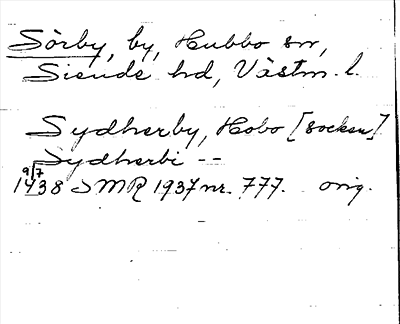 Sörby, by, Hubbo sn,
Siende hd, Västm. l.
Sydherby, Hobo [socken]
Sydherbi --
9/7
1438 SMR 1937 nr. 777. orig.